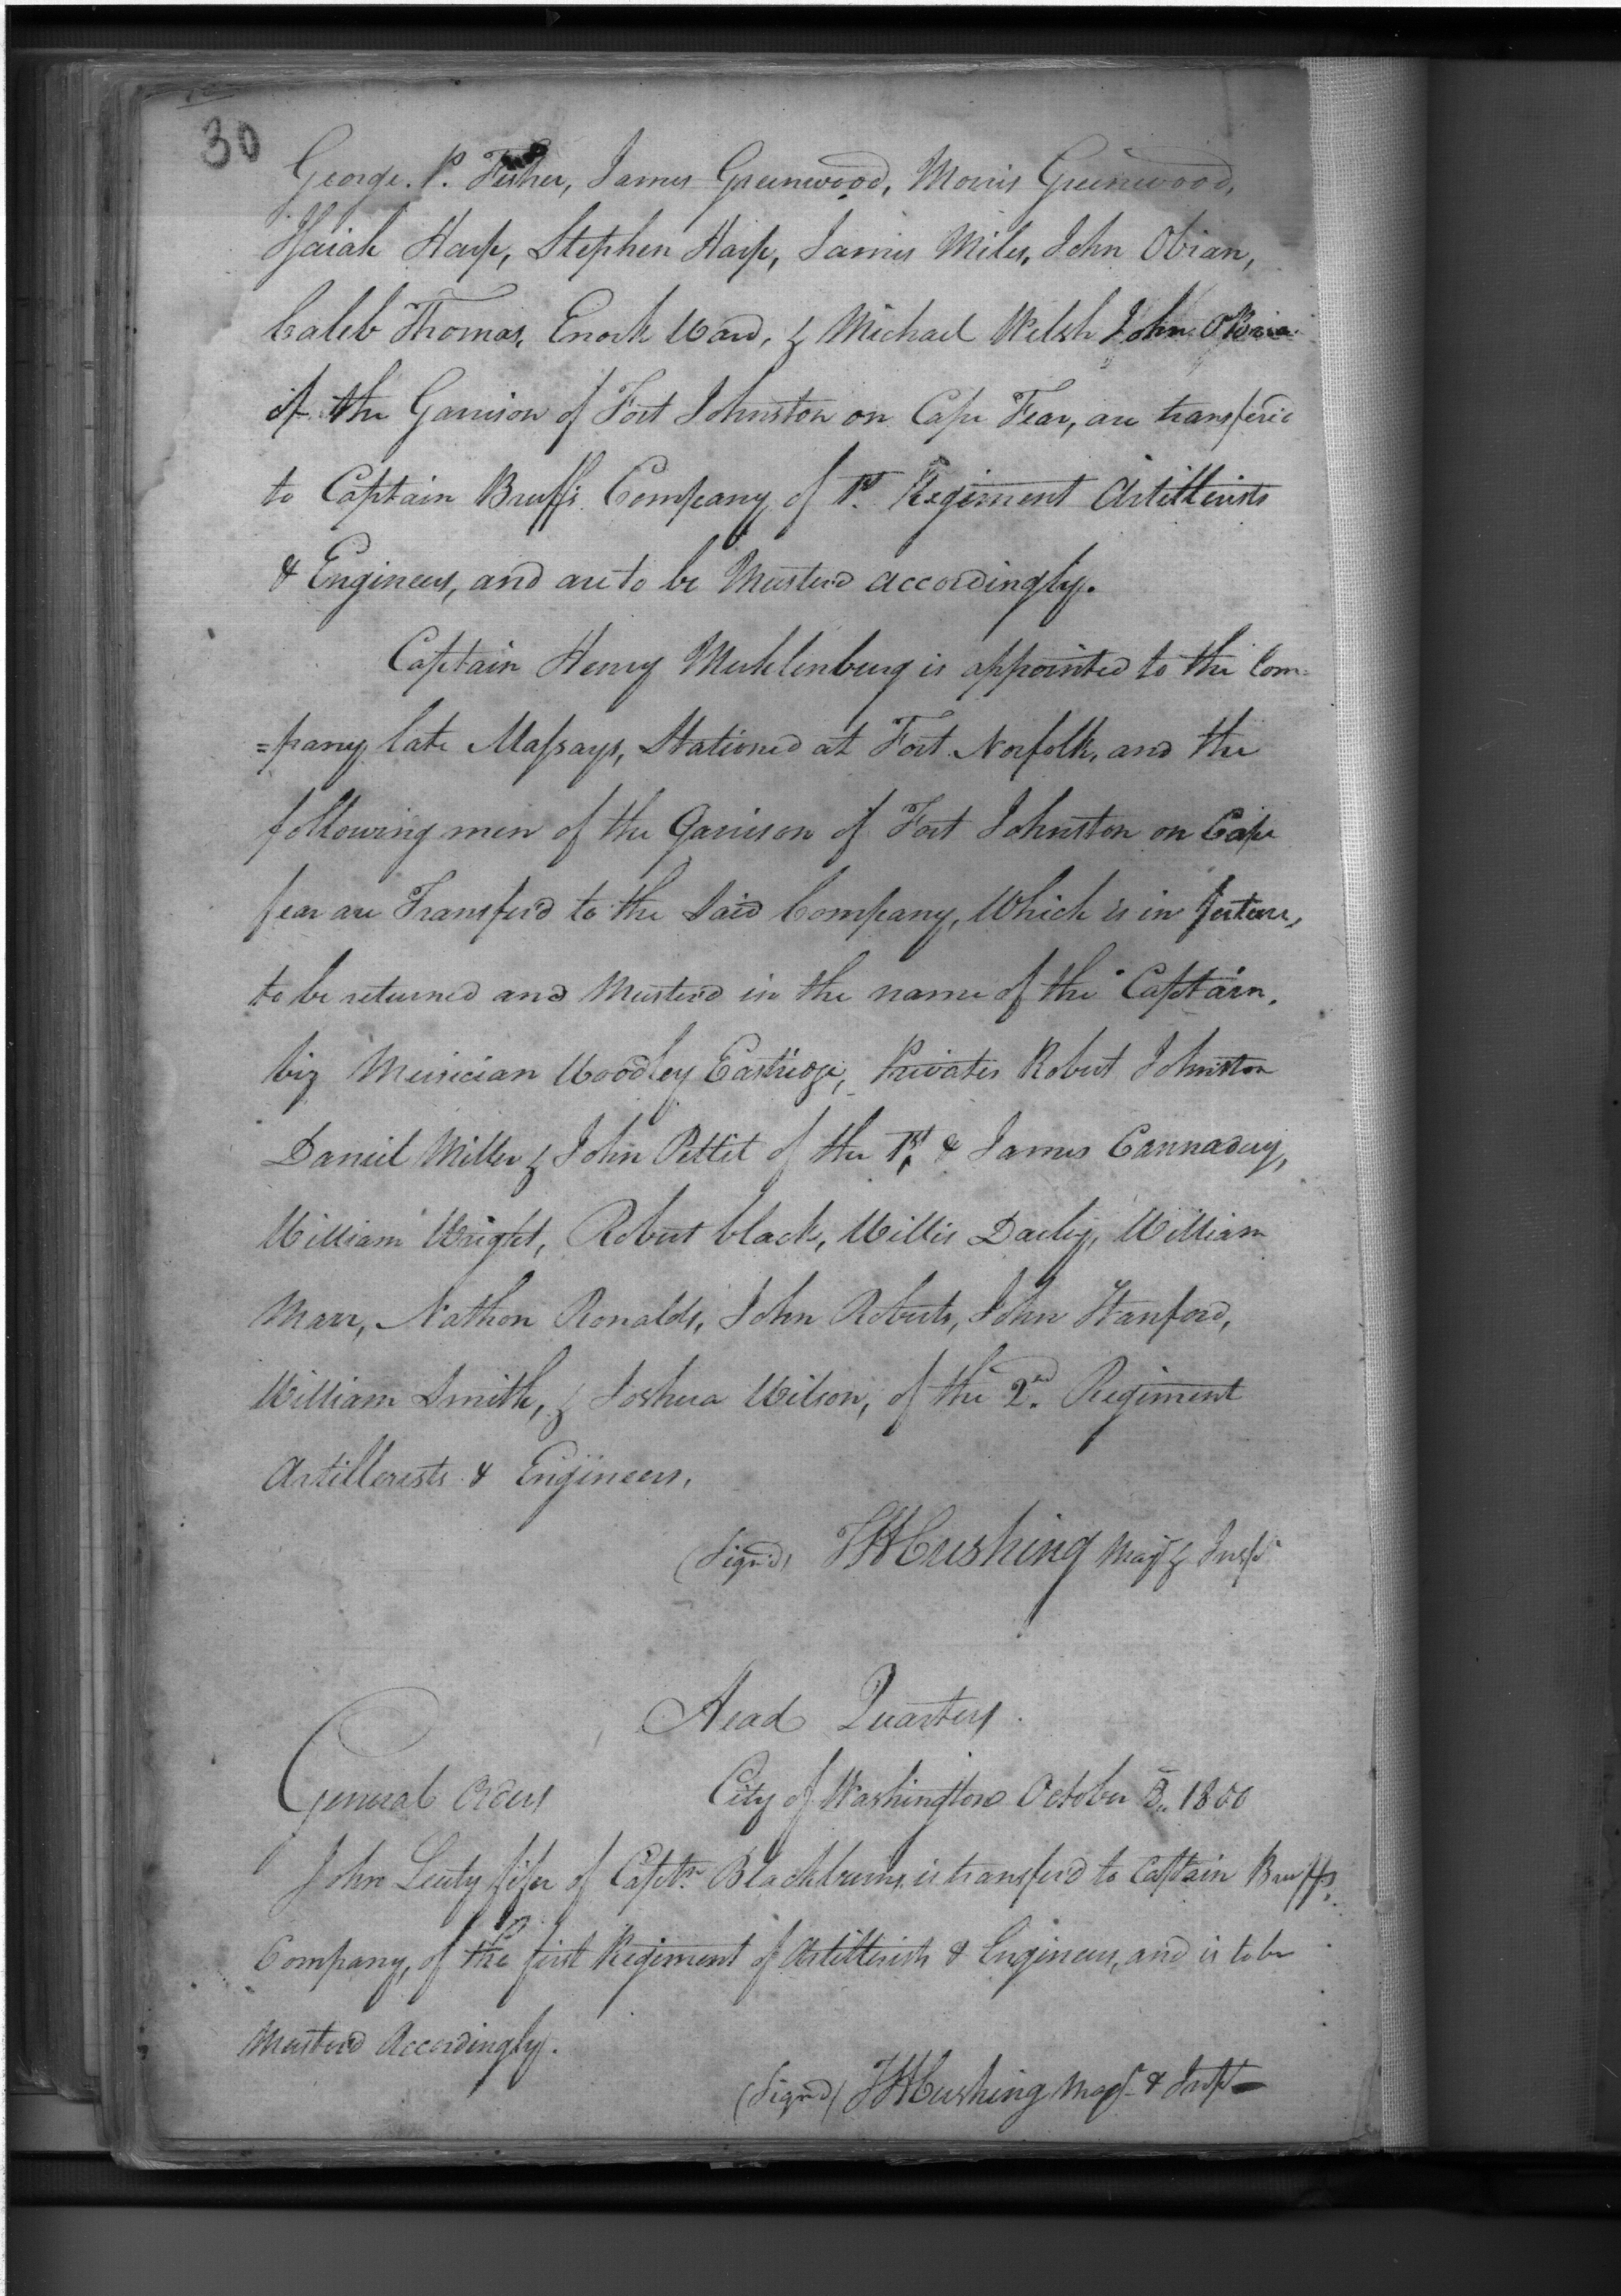 30
George. P. Fisher, James Greenwood, Morris Greenwood,
Isaiah Harp, Stephen Harp, James Miles, John Obian,
Caleb Thomas, Enoch Ward, & Michael Welsh John OBrian
of the Garrison of Fort Johnston on Cape Fear, are transferd
to Captain Bruffs Company of 1st. Regiment Artillerists
& Engineers, and are to be Musterd accordingly.
Captain Henry Muhlenburg is appointed to the Com-
=pany late Massays, Stationed at Fort Norfolk, and the
following men of the Garrison of Fort Johnston on Cape
fear are Transferd to the Said Company, Which is in future,
to be returned and Musterd in the name of the Captain,
Viz Musician Woodley Eastridge, Privates Robert Johnston
Daniel Miller & John Pettit of the 1st. & James Cannaday,
William Wright, Robert black, Willis Dailey, William
Marr, Nathon Ronalds, John Roberts, John Stanford,
William Smith, & Joshua Wilson, of the 2nd. Regiment
Artillerists & Engineers.
(Signd) THCushing Majr. & Inspr.
Head Quarters.
General Orders City of Washington October 1800
John Leuty fifer of Captn. Blackburns is transferd to Captain Bruffs,
Company, of the first Regiment of Artillerists & Engineers, and is to be
Musterd Accordingly.
(Signd) THCushing Majr. & Inspr